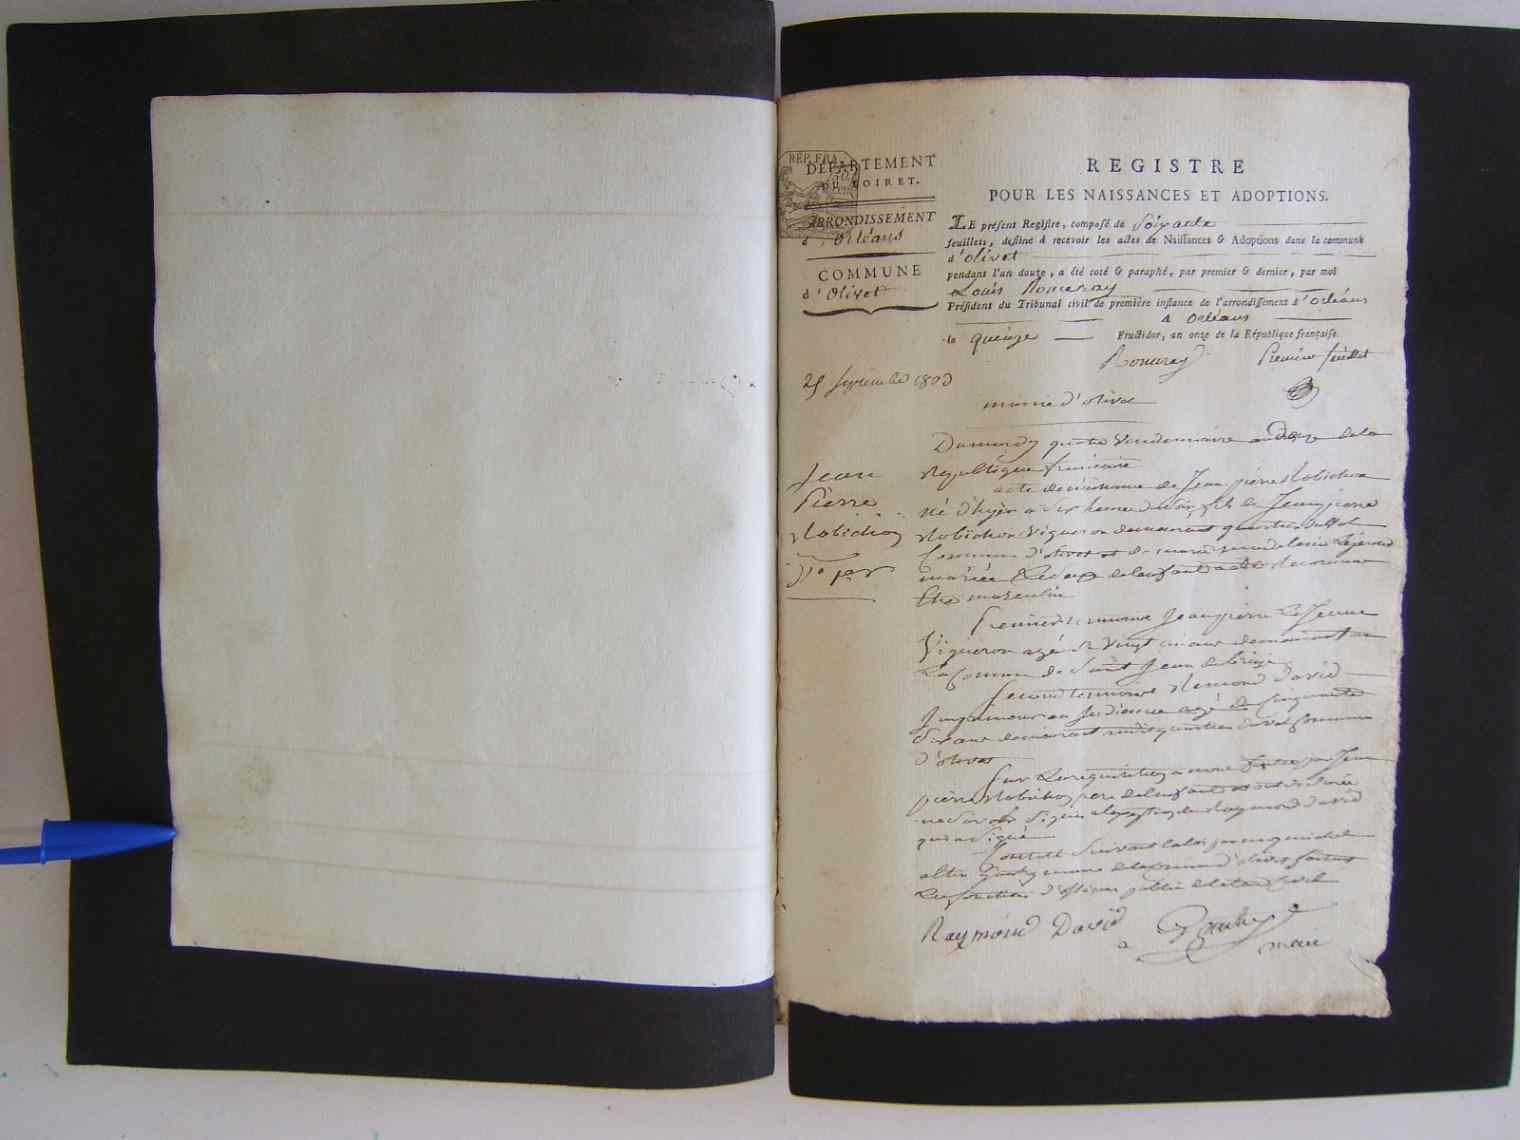 REP. FRA.
DÉPARTEMENT
DU LOIRET.
ARRONDISSEMENT
d'Orléans
COMMUNE
d'Olivet
REGISTRE
POUR LES NAISSANCES ET ADOPTIONS.
LE présent Registre, composé de Soixante
feuillets, destiné à recevoir les actes de Naissances & Adoptions dans la commune
d'olivet
pendant l'an douze, a été coté & paraphé, par premier & dernier, par moi
Louis
Président du Tribunal civil de première instance de l'arrondissement d'orléans
A orléans
le quinze Fructidor, an onze de la République française.
Premier feuillet
25 septembre 1803
mairie d'olivet
Jean
Pierre
Robichon
Du mardy quatre Vendemiaire an Douze de la
Republique francaise
acte de naissance de Jean pierre Robichon
né d'hyer a six heures du soir fils de Jean pierre
Robichon Vigneron demeurant quartier du Val
Commune d'olivet et de marie Lejeune
mariés Le sexe de l'enfant a été reconnu
Etre masculin
Premier temoin Jean pierre Le Jeune
Vigneron agé de Vingt ans demeurant
La Commune de Saint Jean
Second temoin Remond David
Jardinier agé de Cinquante
Six ans demeurant quartier du val Commune
d'olivet
Sur La requisition a nous faite par Jean
pierre Robichon pere de l'enfant
ne savoir signer a l'exception de Raymond David
qui a signé
Constaté Suivant la loi par moy michel
maire de la commune d'olivet faisant
Les fonctions d'officier public de l'etat Civil
Raymond David
maire